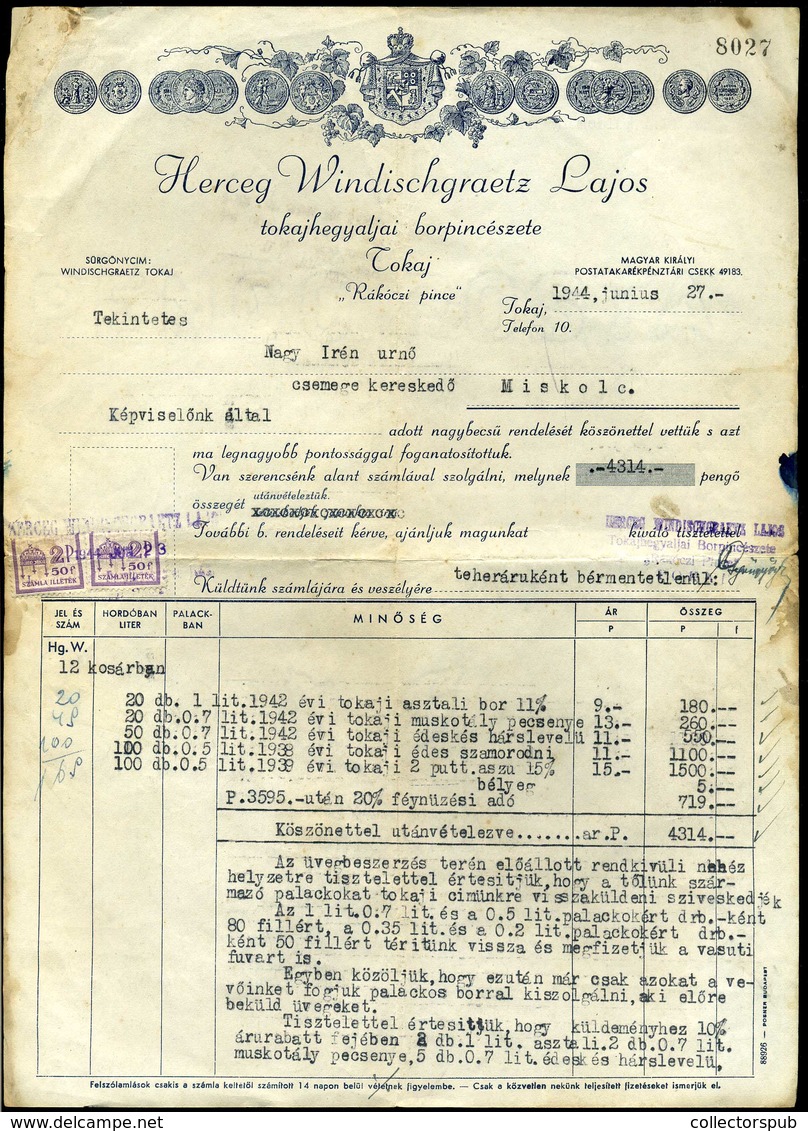 8027
Herceg Windischgraetz Lajos
tokajhegyaljai borpincészete
Tokaj
„Rákóczi pince"
SÜRGÖNYCIM:
WINDISCHGRAETZ TOKAJ
MAGYAR KIRÁLYI
POSTATAKARÉKPÉNZTÁRI CSEKK 49183.
Tokaj, 1944, junius 27.-
Telefon 10.
Tekintetes
Nagy Irén urnő
csemege kereskedő Miskolc.
Képviselőnk által
adott nagybecsű rendelését köszönettel vettük s azt
ma legnagyobb pontossággal foganatosítottuk.
Van szerencsénk alant számlával szolgálni, melynek .-4314.- pengő
utánvételeztük.
összegét
További b. rendeléseit kérve, ajánljuk magunkat kiváló tisztelettel
HERCEG WINDISCHGRAETZ LAJOS
HERCEG WINDISCHGRAETZ LAJOS
Tokajhegyaljai Borpincészete
2P 2P
50f 50f
SZÁMLAILLETÉK SZÁMLAILLETÉK
Küldtünk számlájára és veszélyére teheráruként bérmentetlenül:
JEL ÉS SZÁM HORDÓBAN LITER PALACK-BAN MINŐSÉG ÁR P ÖSSZEG P f
Hg. W.
12 kosárban
20 20 db. 1 lit.1942 évi tokaji asztali bor 11% 9.- 180.--
48 20 db.0.7 lit.1942 évi tokaji muskotály pecsenye 13.- 260.--
50 db.0.7 lit.1942 évi tokaji édeskés hárslevelü 11.- 550.--
100 100 db.0.5 lit.1938 évi tokaji édes szamorodni 11.- 1100.--
168 100 db.0.5 lit.1939 évi tokaji 2 putt.aszu 15% 15.- 1500.--
bélyeg 5.--
P.3595.-után 20% féynüzési adó 719.--
Köszönettel utánvételezve.......ar.P. 4314.--
Az üvegbeszerzés terén előállott rendkivüli nehéz
helyzetre tisztelettel értesitjük,hogy a tőlünk szár-
mazó palackokat tokaji cimünkre visszaküldeni sziveskedjék
Az 1 lit.0.7 lit.és a 0.5 lit.palackokért drb.-ként
80 fillért, a 0.35 lit.és a 0.2 lit.palackokért drb.-
ként 50 fillért téritünk vissza és megfizetjük a vasuti
fuvart is.
Egyben közöljük,hogy ezután már csak azokat a ve-
vőinket fogjuk palackos borral kiszolgálni,aki előre
beküld üvegeket.
Tisztelettel értesitjük, hogy küldeményhez 10%
árurabatt fejében 2 db.1 lit. asztali.2 db.0.7 lit.
muskotály pecsenye,5 db.0.7 lit.édeskés hárslevelü,
88926 — POSNER BUDAPEST
Felszólamlások csakis a számla keltétől számított 14 napon belül vétetnek figyelembe. — Csak a közvetlen nekünk teljesített fizetéseket ismerjük el.
collectorspub